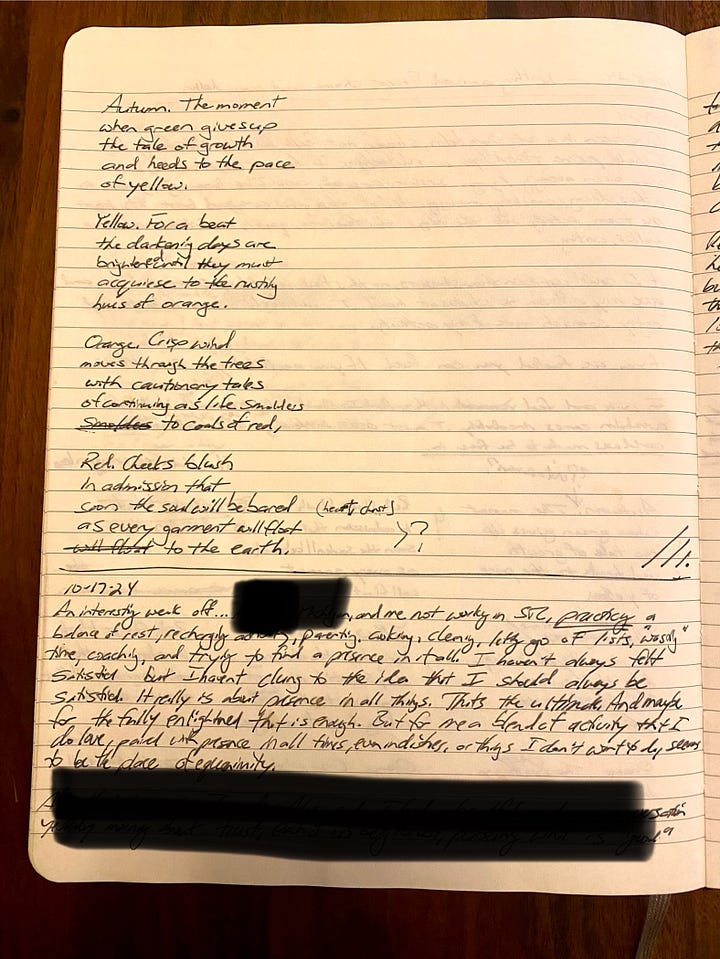 Autumn. The moment
when green gives up
the tale of growth
and heeds to the pace
of yellow.
Yellow. For a beat
the darkening days are
brightened until they must
acquiese to the rustily
hues of orange.
Orange. Crisp wind
moves through the trees
with cautionary tales
of continuing as life smolders
smolders to coals of red,
Red. Cheeks blush
in admission that
soon the soul will be bared (heart, chest)
as every garment will float }?
will float to the earth.
///.
10-17-24
An interesting week off... and me not working in STL, practicing a
balance of rest, recharging activity, parenting, cooking, cleaning, letting go of lists, "wasting"
time, coaching, and trying to find a presence in it all. I haven't always felt
satisfied but I haven't clung to the idea that I should always be
satisfied. It really is about presence in all things. That's the ultimate. And maybe
for the fully enlightened that is enough. But for me a blend of activity that I
do love, paired with presence in all times, even in dishes, or things I don't want to do, seems
to be the place of equanimity.